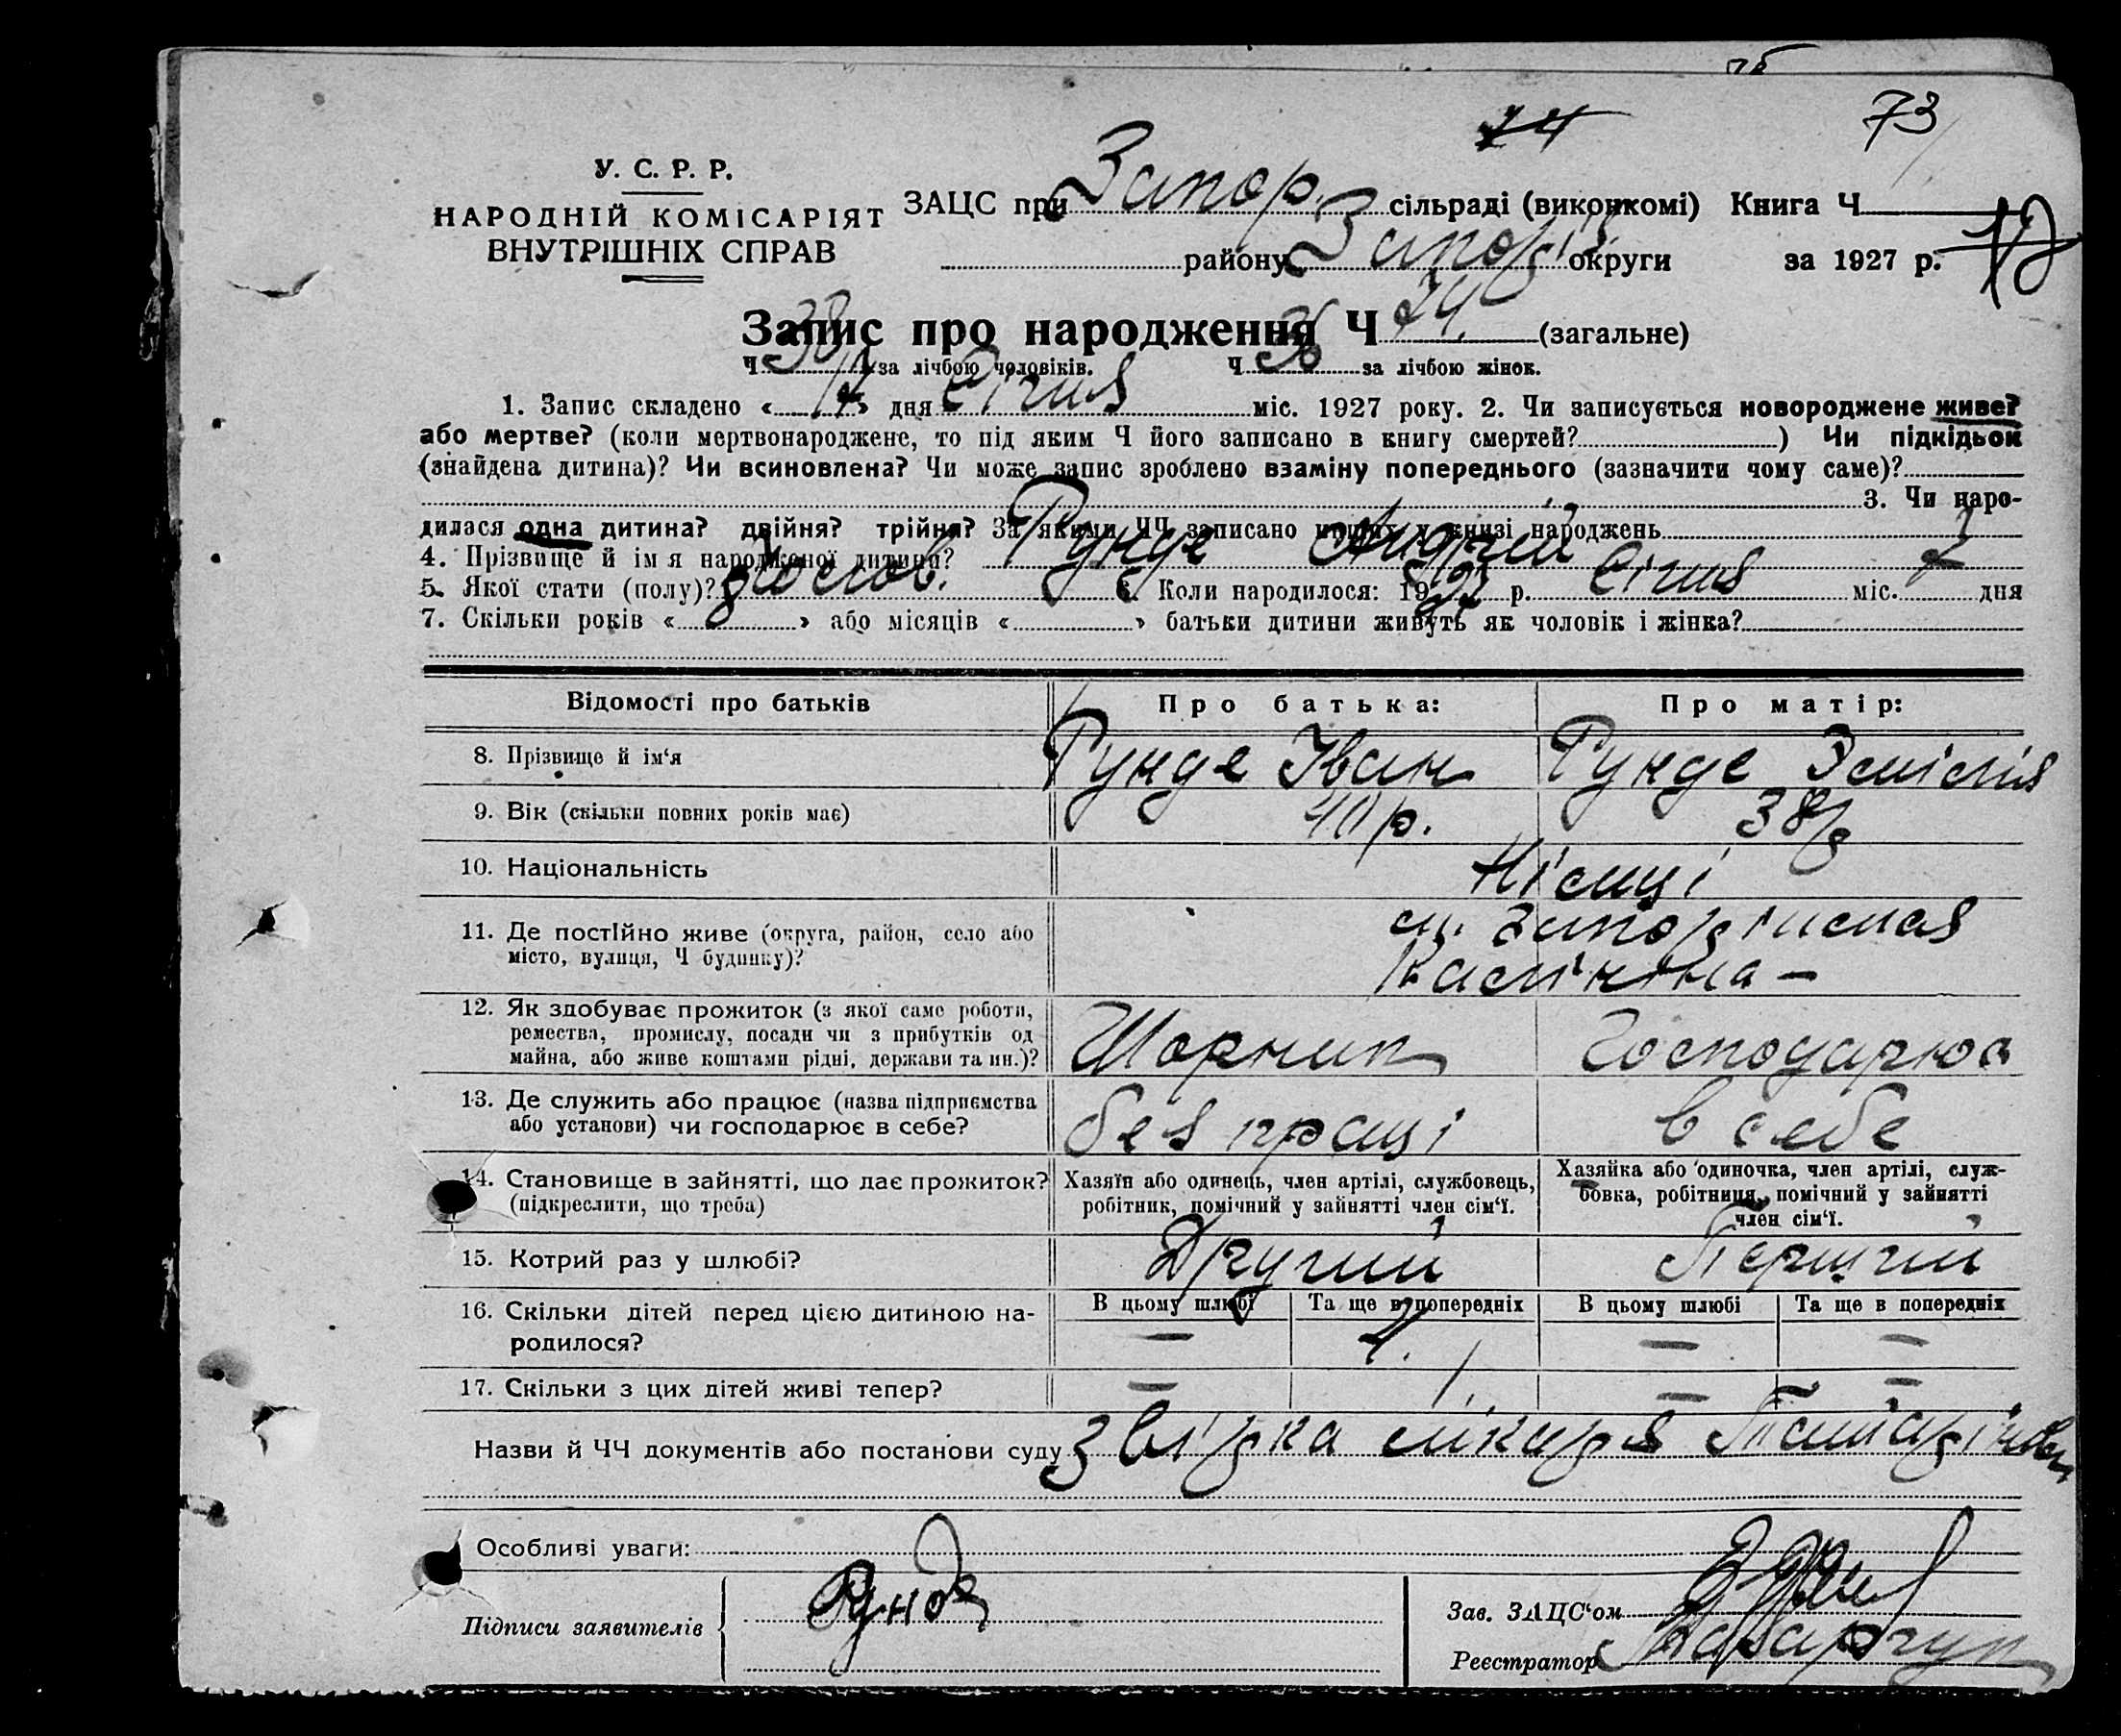 73
У. С. Р. Р.
НАРОДНІЙ КОМІСАРІЯТ
ВНУТРІШНІХ СПРАВ
ЗАЦС при Запор. сільраді (виконкомі) Книга Ч
району Запоріз округи за 1927 р.
Запис про народження Ч 74. (загальне)
Ч 38 за лічбою чоловіків. Ч 36 за лічбою жінок.
1. Запис складено « 17 » дня Січня міс. 1927 року. 2. Чи записується новороджене живе?
або мертве? (коли мертвонароджене, то під яким Ч його записано в книгу смертей? ) Чи підкідьок
(знайдена дитина)? Чи всиновлена? Чи може запис зроблено взаміну попереднього (зазначити чому саме)?
3. Чи наро-
дилася одна дитина? двійня? трійня? За якими ЧЧ записано инших у книзі народжень
4. Прізвище й ім я народженої дитини? Рунде Андрій
5. Якої стати (полу)? чолов. 6. Коли народилося: 1927 р. Січня міс. дня
7. Скільки років « » або місяців « » батьки дитини живуть як чоловік і жінка?
Відомості про батьків Про батька: Про матір:
8. Прізвище й ім‘я Рунде Іван Рунде Емілія
9. Вік (скільки повних років має) 40 р. 38 р
10. Національність Німці
11. Де постійно живе (округа, район, село або
місто, вулиця, Ч будинку)?
м. Запоріжжя
12. Як здобуває прожиток (з якої саме роботи,
ремества, промислу, посади чи з прибутків од
майна, або живе коштами рідні, держави та ин.)?
Шорник Господарює
13. Де служить або працює (назва підприємства
або установи) чи господарює в себе?
без праці в себе
14. Становище в зайнятті, що дає прожиток?
(підкреслити, що треба)
Хазяїн або одинець, член артілі, службовець,
робітник, помічний у зайнятті член сім‘ї.
Хазяйка або одиночка, член артілі, служ-
бовка, робітниця, помічний у зайнятті
член сім‘ї.
15. Котрий раз у шлюбі? Другий Перший
16. Скільки дітей перед цією дитиною на-
родилося?
В цьому шлюбі Та ще в попередніх В цьому шлюбі Та ще в попередніх
— 4. — —
17. Скільки з цих дітей живі тепер? — 1. — —
Назви й ЧЧ документів або постанови суду звірка лікаря
Особливі уваги:
Підписи заявителів Рунде
Зав. ЗАЦС‘ом
Реєстратор